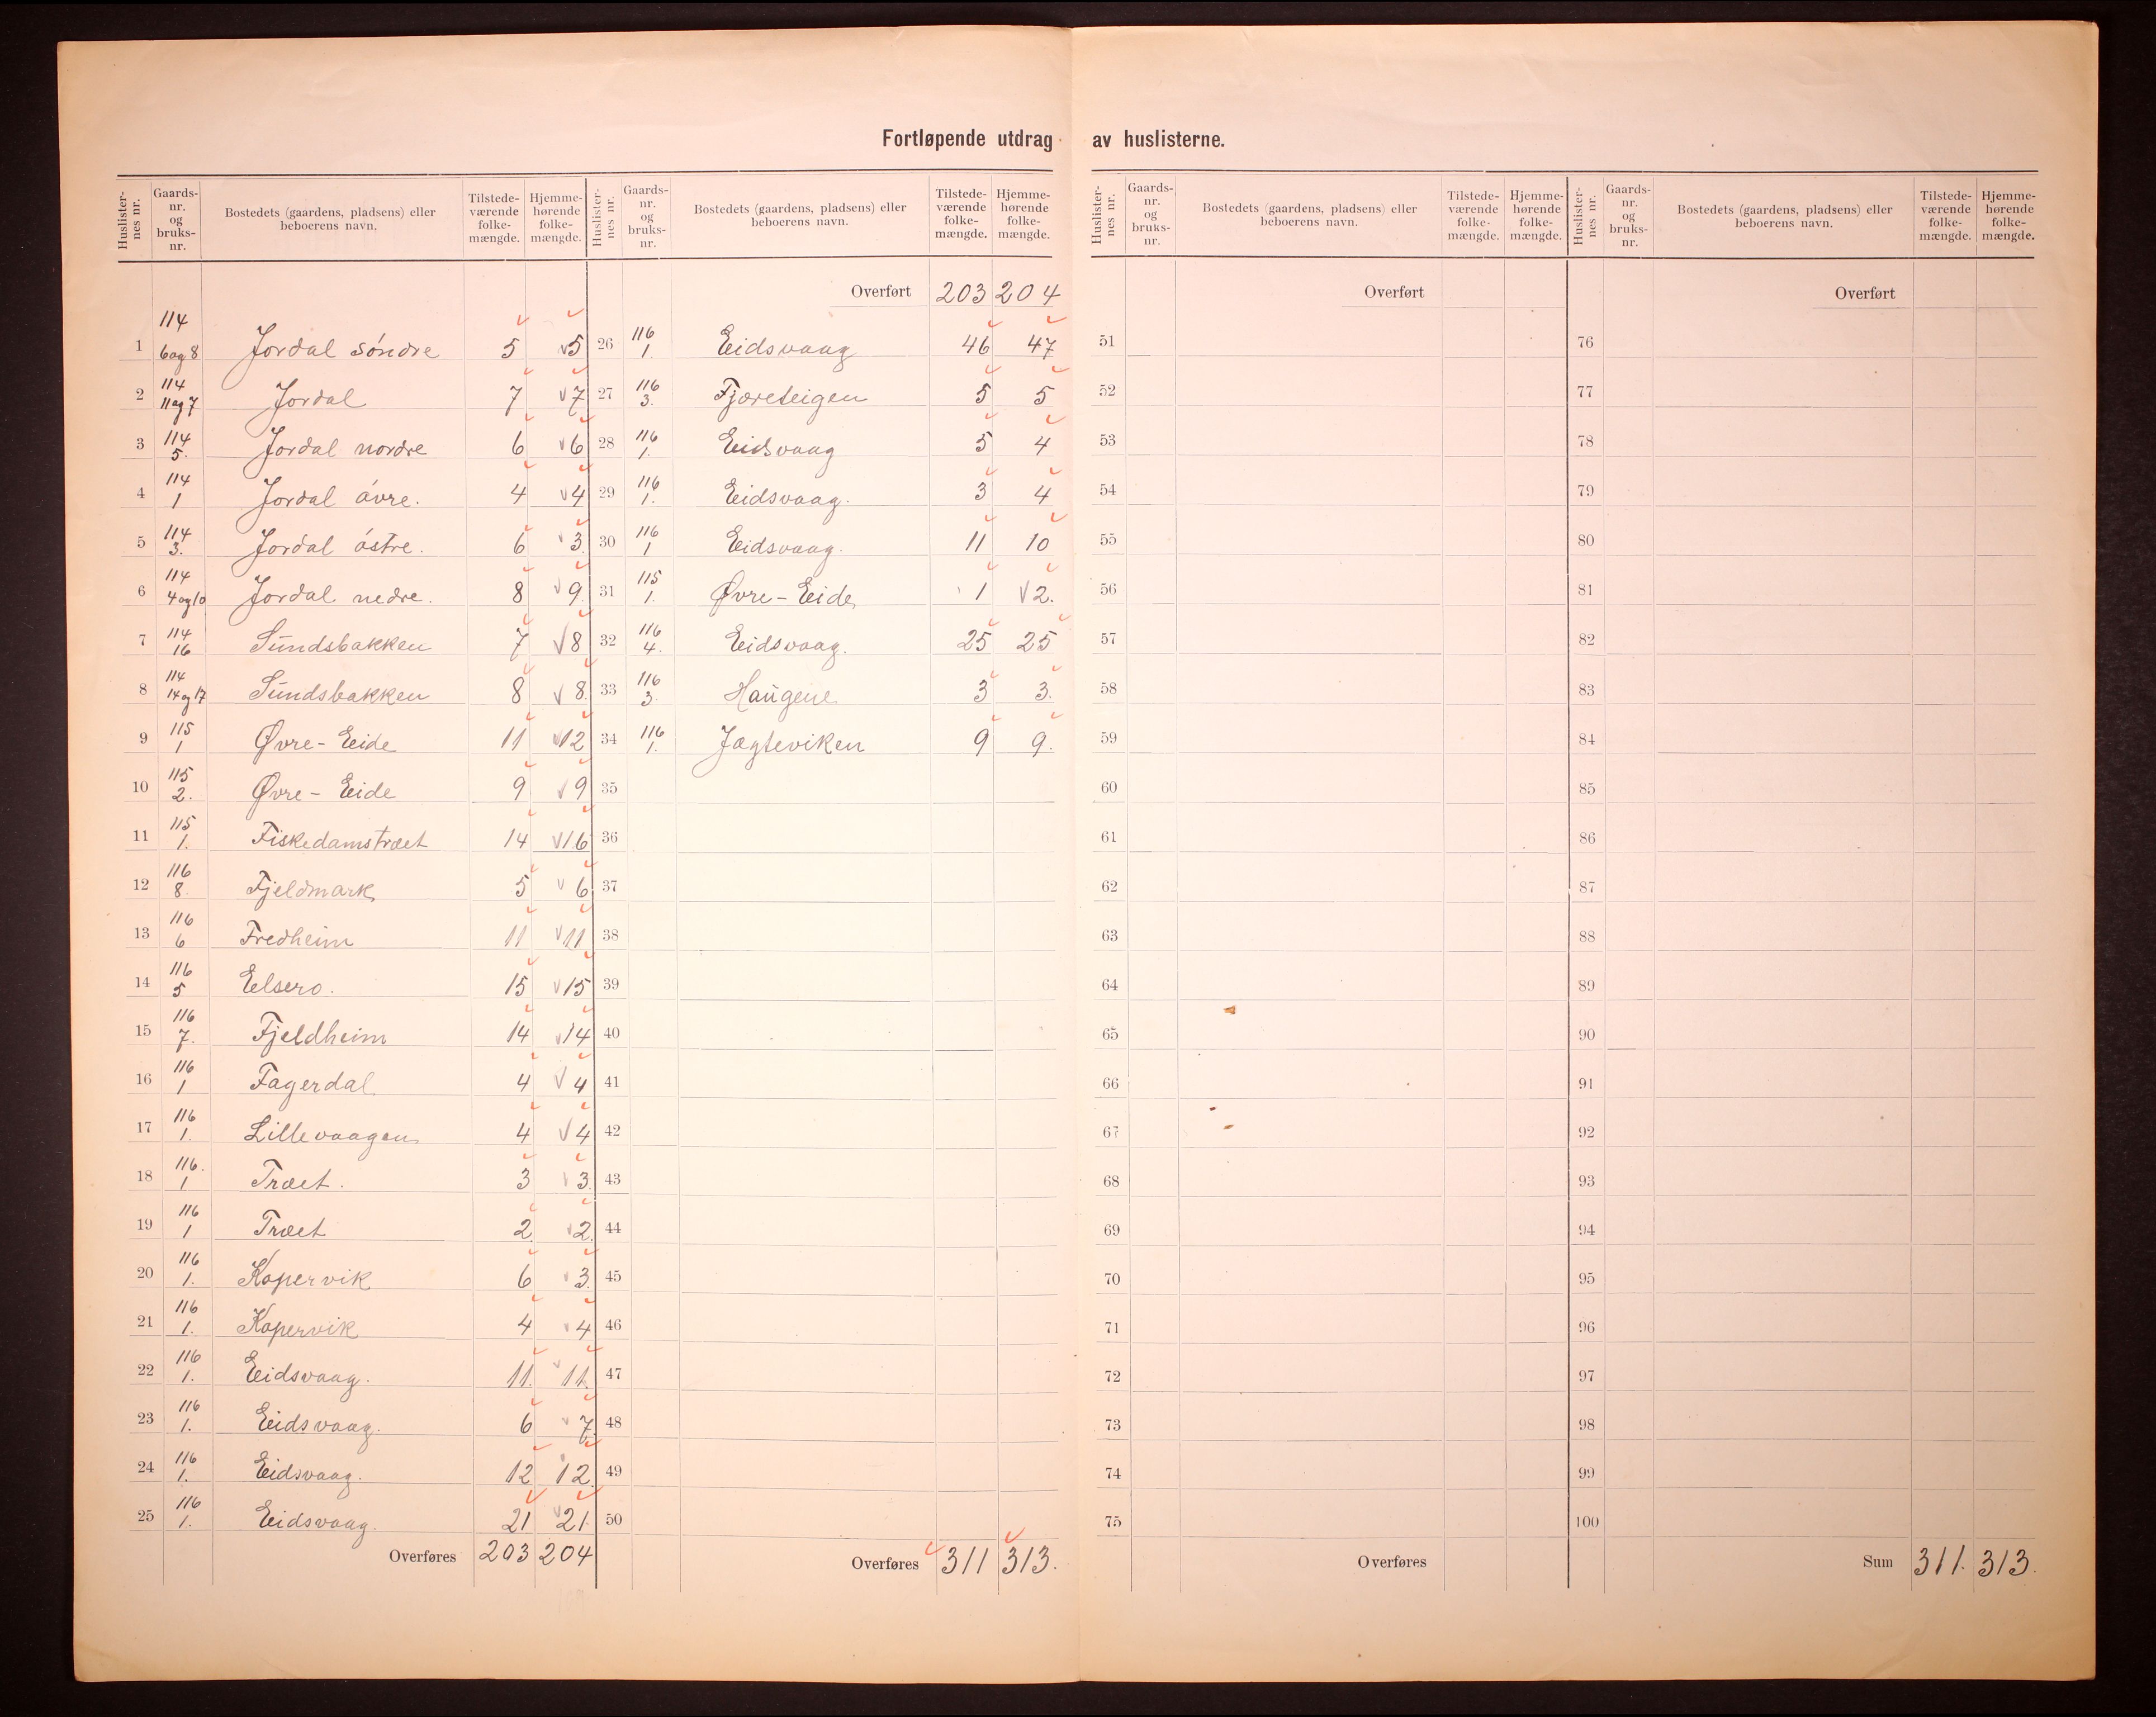 Fortløpende utdrag av huslisterne.
Huslisternes nr. | Gaards-nr. og bruks-nr. | Bostedets (gaardens, pladsens) eller beboerens navn. | Tilstede-værende folke-mængde. | Hjemme-hørende folke-mængde.
1 | 114 6 og 8 | Jordal søndre | 5 | 5
2 | 114 11 og 7 | Jordal | 7 | 7
3 | 114 5. | Jordal nordre | 6 | 6
4 | 114 1 | Jordal øvre. | 4 | 4
5 | 114 3. | Jordal østre. | 6 | 3.
6 | 114 4 og 10 | Jordal nedre. | 8 | 9.
7 | 114 16 | Sundsbakken | 7 | 8
8 | 114 14 og 17 | Sundsbakken | 8 | 8.
9 | 115 1 | Øvre-Eide | 11 | 12
10 | 115 2. | Øvre-Eide | 9 | 9
11 | 115 1. | Fiskedamstræet | 14 | 16
12 | 116 8 | Fjeldmark | 5 | 6
13 | 116 6 | Fredheim | 11 | 11
14 | 116 5 | Eelsero. | 15 | 15
15 | 116 7. | Fjeldheim | 14 | 14
16 | 116 1 | Fagerdal | 4 | 4
17 | 116 1. | Lillevaagen | 4 | 4
18 | 116. 1 | Træet. | 3 | 3.
19 | 116 1 | Træet | 2 | 2.
20 | 116 1. | Kopervik | 6 | 3.
21 | 116 1. | Kopervik | 4 | 4
22 | 116 1. | Eidsvaag. | 11. | 11.
23 | 116 1. | Eidsvaag. | 6 | 7.
24 | 116 1. | Eidsvaag. | 12 | 12.
25 | 116 1. | Eidsvaag. | 21 | 21.
Overføres | 203 | 204
Huslisternes nr. | Gaards-nr. og bruks-nr. | Bostedets (gaardens, pladsens) eller beboerens navn. | Tilstede-værende folke-mængde. | Hjemme-hørende folke-mængde.
Overført | 203 | 204
26 | 116 1. | Eidsvaag | 46 | 47
27 | 116 3. | Fjæreteigen | 5 | 5
28 | 116 1. | Eidsvaag | 5 | 4
29 | 116 1. | Eidsvaag. | 3 | 4
30 | 116 1 | Eidsvaag. | 11 | 10
31 | 115 1. | Øvre-Eide | 1 | 2.
32 | 116 4. | Eidsvaag. | 25 | 25
33 | 116 3. | Haugene | 3 | 3.
34 | 116 1. | Jægteviken | 9 | 9.
35
36
37
38
39
40
41
42
43
44
45
46
47
48
49
50
Overføres | 311 | 313.
Huslisternes nr. | Gaards-nr. og bruks-nr. | Bostedets (gaardens, pladsens) eller beboerens navn. | Tilstede-værende folke-mængde. | Hjemme-hørende folke-mængde.
Overført
51
52
53
54
55
56
57
58
59
60
61
62
63
64
65
66
67
68
69
70
71
72
73
74
75
Overføres
Huslisternes nr. | Gaards-nr. og bruks-nr. | Bostedets (gaardens, pladsens) eller beboerens navn. | Tilstede-værende folke-mængde. | Hjemme-hørende folke-mængde.
Overført
76
77
78
79
80
81
82
83
84
85
86
87
88
89
90
91
92
93
94
95
96
97
98
99
100
Sum | 311. | 313.